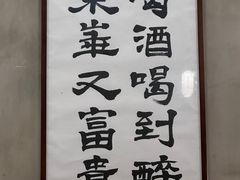 喝酒喝到醉
榮華又富貴